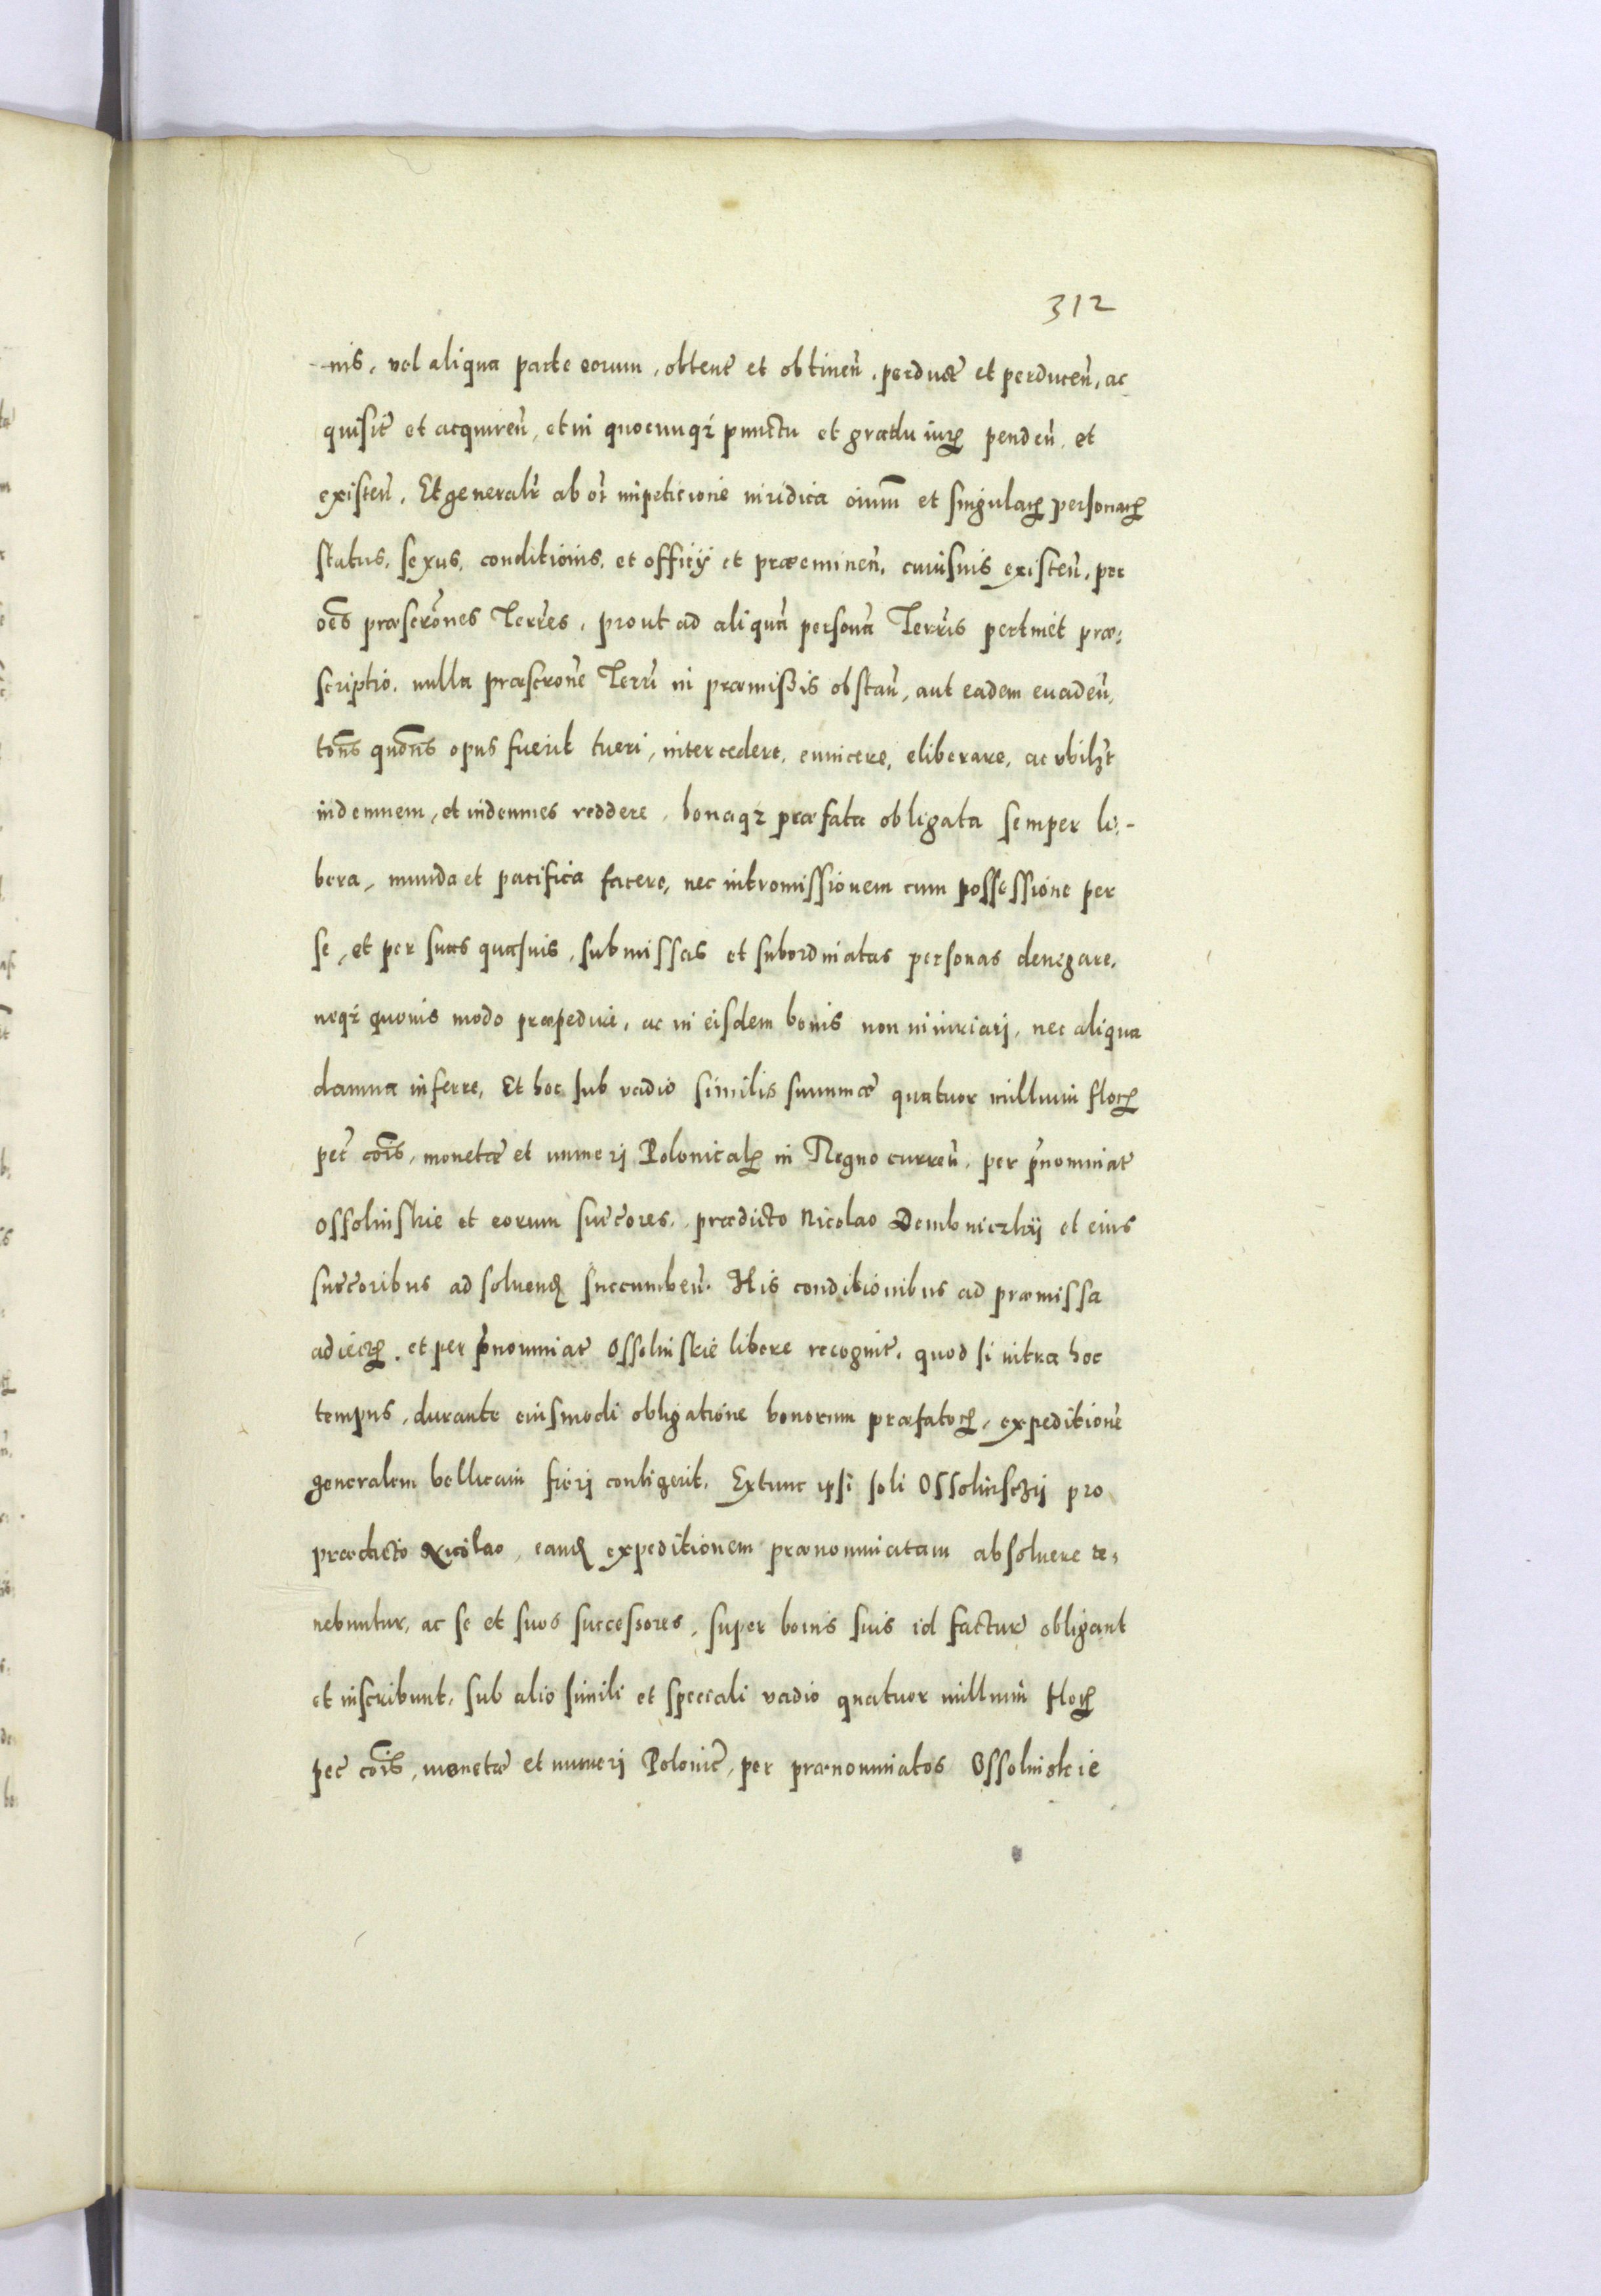 312
nis, vel aliqua parte eorum, obtent̃ et obtineñ, perduct̃ et perduceñ, ac
quisit̃ et acquireñ, et in quocunqꝫ punctu et gradu iurꝭ pendeñ, et
existeñ. Et generalr̃ ab oĩ impeticione iuridica oium̃ et singularꝝ personarꝝ
status, sexus, conditionis, et officij et præeminen̄, cuiusuis existeñ, per
oẽs præscrõnes Terrẽs, prout ad aliquã personã Terrĩs pertinet præ:
scriptio, nulla præscrõne Terrĩ in præmißis obstañ, aut eadem euadeñ,
tõns quõns opus fuerit tueri, intercedere, euincere, eliberare, ac vbilꝫt
indemnem, et indemnes reddere, bonaqꝫ præfata obligata semper li:-
bera, munda et pacifica facere, nec intromissionem cum possessione per
se, et per suas quasuis, submissas et subordinatas personas denegare,
neqꝫ quouis modo præpedire, ac in eisdem bonis non iniuriari, nec aliqua
damna inferre, Et hoc sub vadio similis summæ quatuor millium florꝝ
pec̃ cõis, monetæ et numeri Polonicalꝭ in Regno curreñ, per p̃nominat̃
Ossolinskie et eorum succ̃ores, prædicto Nicolao Dembniczkij et eius
succ̃oribus ad soluenđ succumbeñ. His conditionibus ad præmissa
adiectꝭ, et per p̃nominat̃ Ossolinskie libere recognit̃, quod si intra hoc
tempus, durante eiusmodi obligatione bonorum præfatorꝝ, expeditionẽ
generalem bellicam fieri contigerit, Extunc ipsi soli Ossolinsczij pro
prædicto Nicolao, eanđ expeditionem prænominatam absoluere te:
nebuntur, ac se et suos successores, super bonis suis id factur̃ obligant
et inscribunt, sub alio simili et speciali vadio quatuor millium florꝝ
pec̃ cõis, monetæ et numeri Polonic̃, per prænominatos Ossolinskie